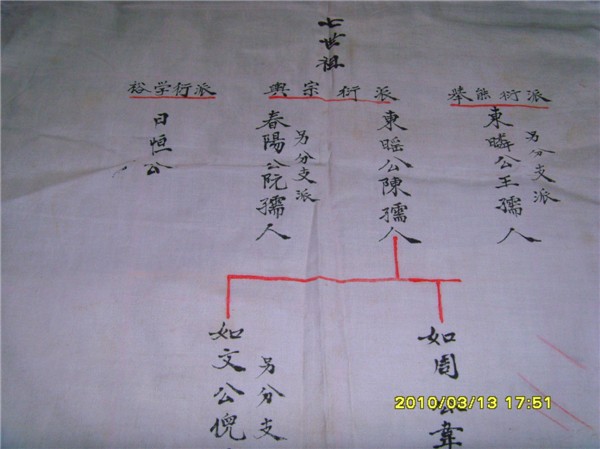 七世祖
裕学衍派
興宗衍派
熊衍派
東暽公王孺人
另分支派
東暚公陳孺人
春陽公阮孺人
另分支派
日恒公
如周公韋
如文公倪
另分支
2010/03/13 17:51